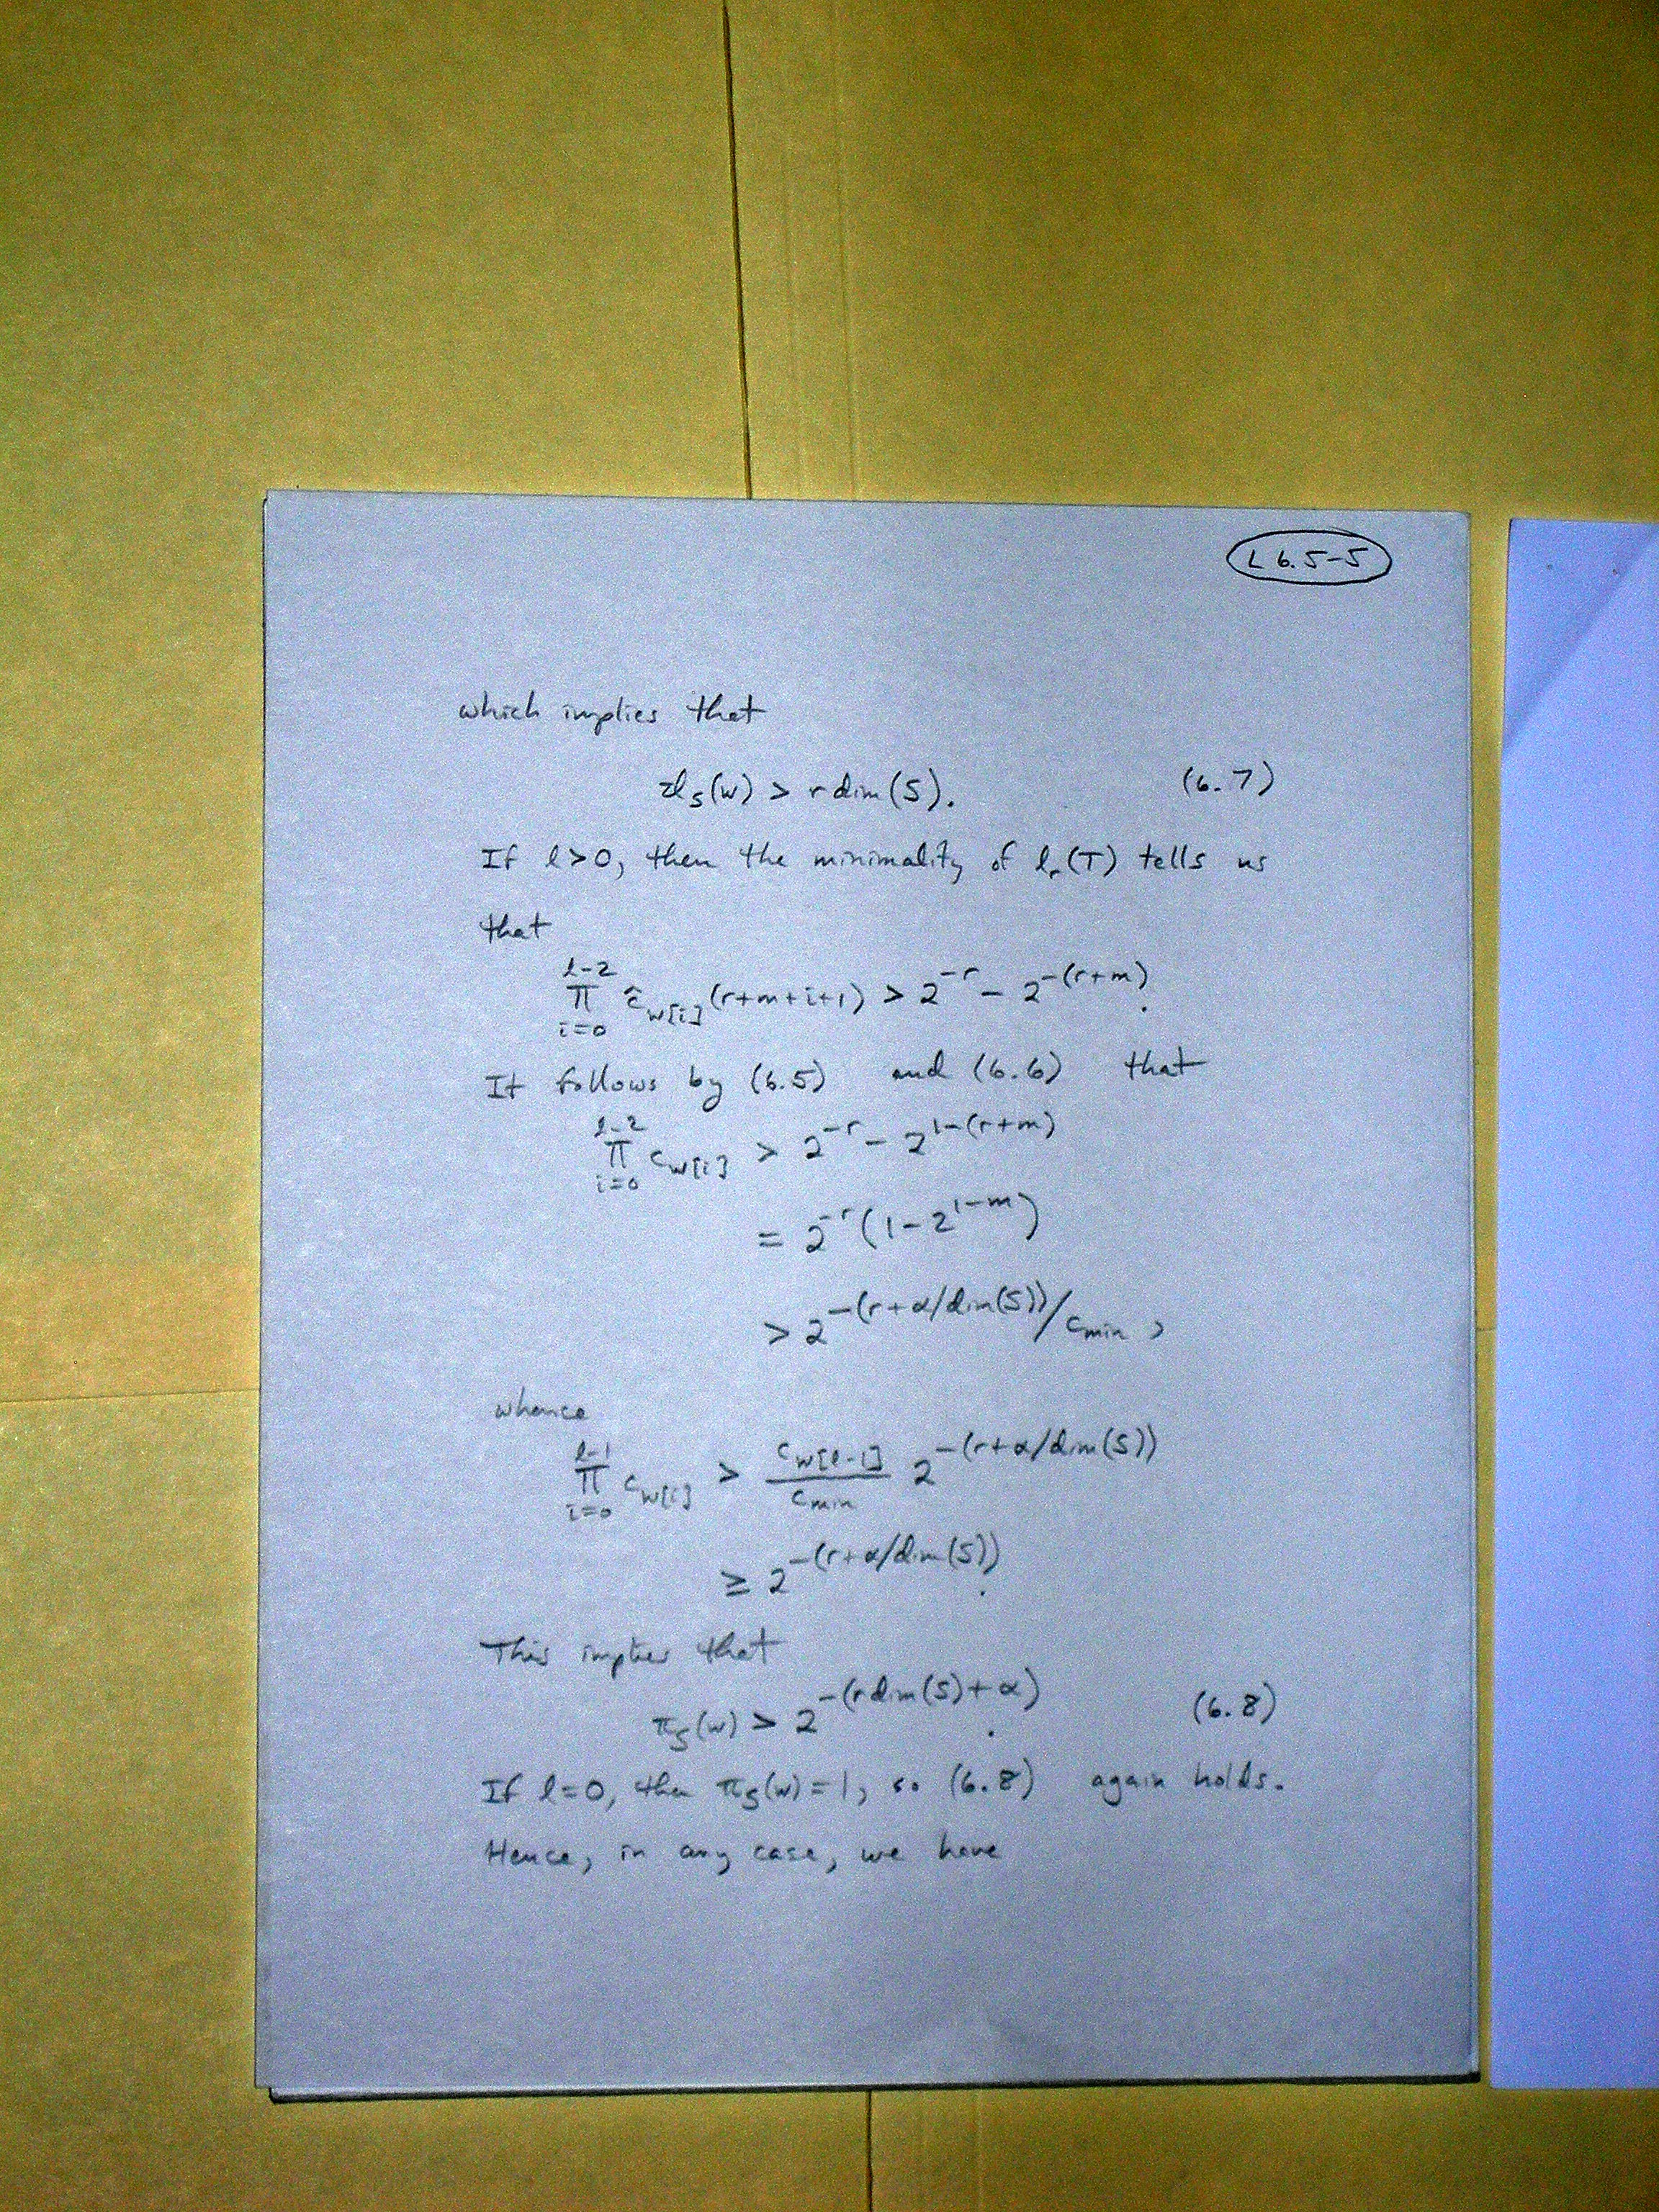 L 6.5-5
which implies that
ℐ_S(w) > r dim(S). (6.7)
If l > 0, then the minimality of l_r(T) tells us
that
∏_{i=0}^{l-2} ĉ_{w[i]}(r+m+i+1) > 2^{-r} - 2^{-(r+m)}.
It follows by (6.5) and (6.6) that
∏_{i=0}^{l-2} c_{w[i]} > 2^{-r} - 2^{1-(r+m)}
= 2^{-r}(1-2^{1-m})
> 2^{-(r+α/dim(S))}/c_{min},
whence
∏_{i=0}^{l-1} c_{w[i]} > \frac{c_{w[l-1]}}{c_{min}} 2^{-(r+α/dim(S))}
≥ 2^{-(r+α/dim(S))}.
This implies that
π_S(w) > 2^{-(r dim(S)+α)}. (6.8)
If l=0, then π_S(w)=1, so (6.8) again holds.
Hence, in any case, we have